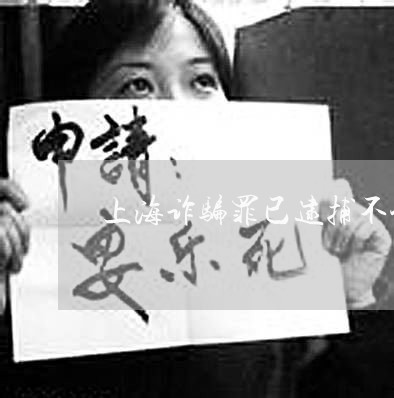 申請：
上海诈骗罪已逮捕不
安乐死